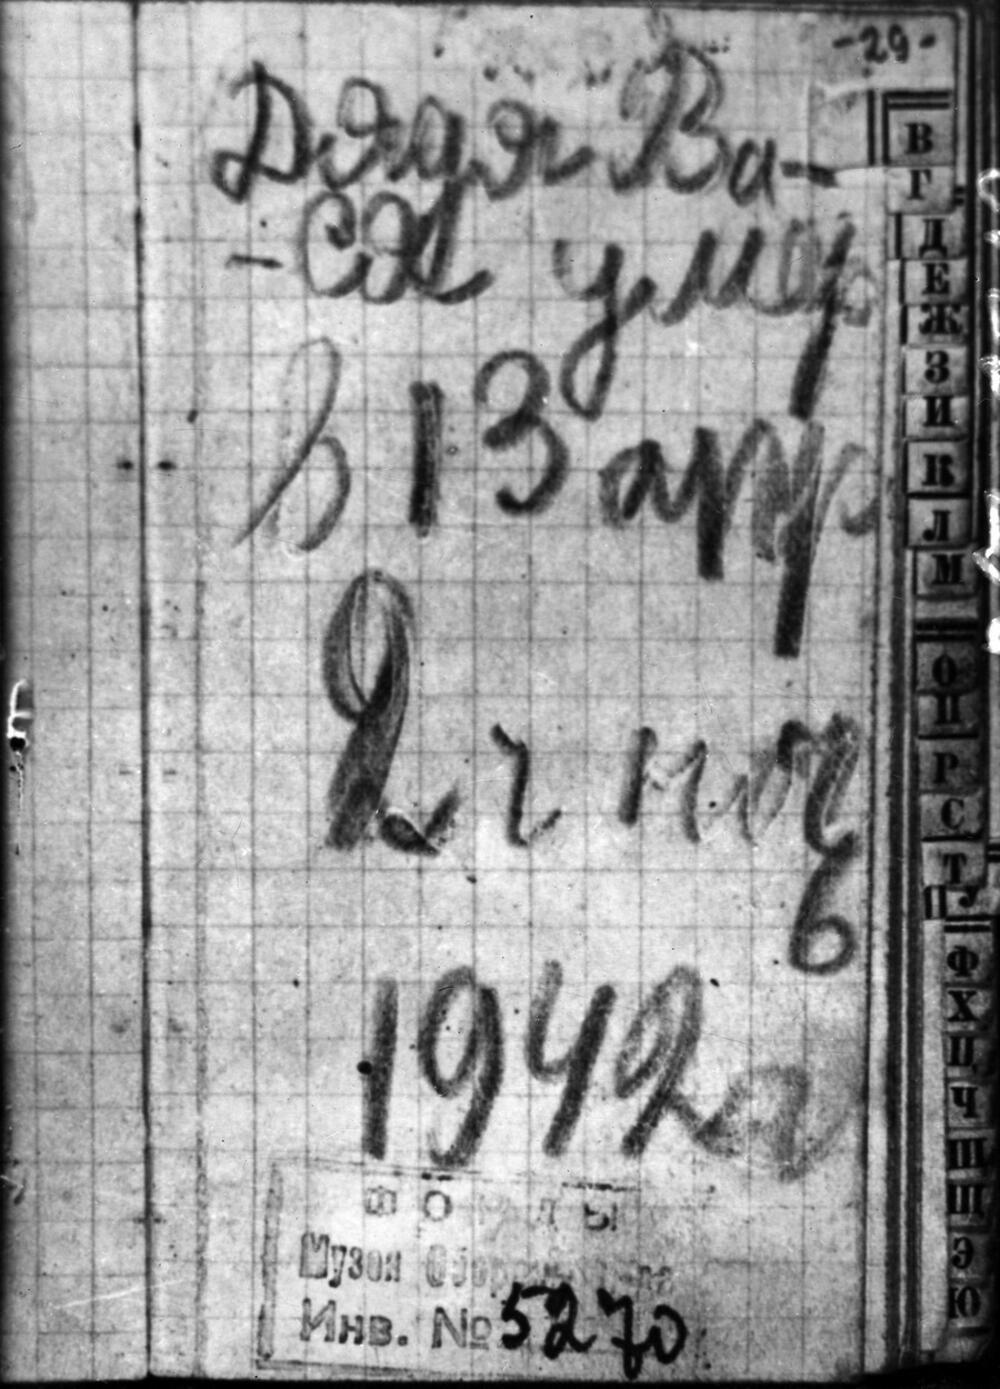 -29-
Дядя Ва-
-ся умер
в 13 апр
2 ч ноч
ь
1942 г
ФОНДЫ
Музея Обороны
Инв. № 5270
В
Г
Д
Е
Ж
З
И
К
Л
М
О
П
Р
С
Т
У
Ф
Х
Ц
Ч
Ш
Щ
Э
Ю